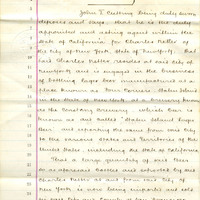 John T. Cutting being duly sworn
deposes and says, that he is the duly
appointed and acting agent within the
State of California for Charles
of the City of New York, State of New York,
that Charles resides at said City of
New York and is engaged in the business
of bottling lager beer manufactured at a
place known as Four Corners, Staten Island
in the State of New York, at a brewery known
as the Constanz Brewery, which beer is
known as and called "Staten Island Lager
Beer" and exporting the same from said City
to the various States and Territories of the
United States, including the State of California
That a large quantity of said beer
so as aforesaid bottled and exported by said
Charles from said City of
New York is now being imported and sold